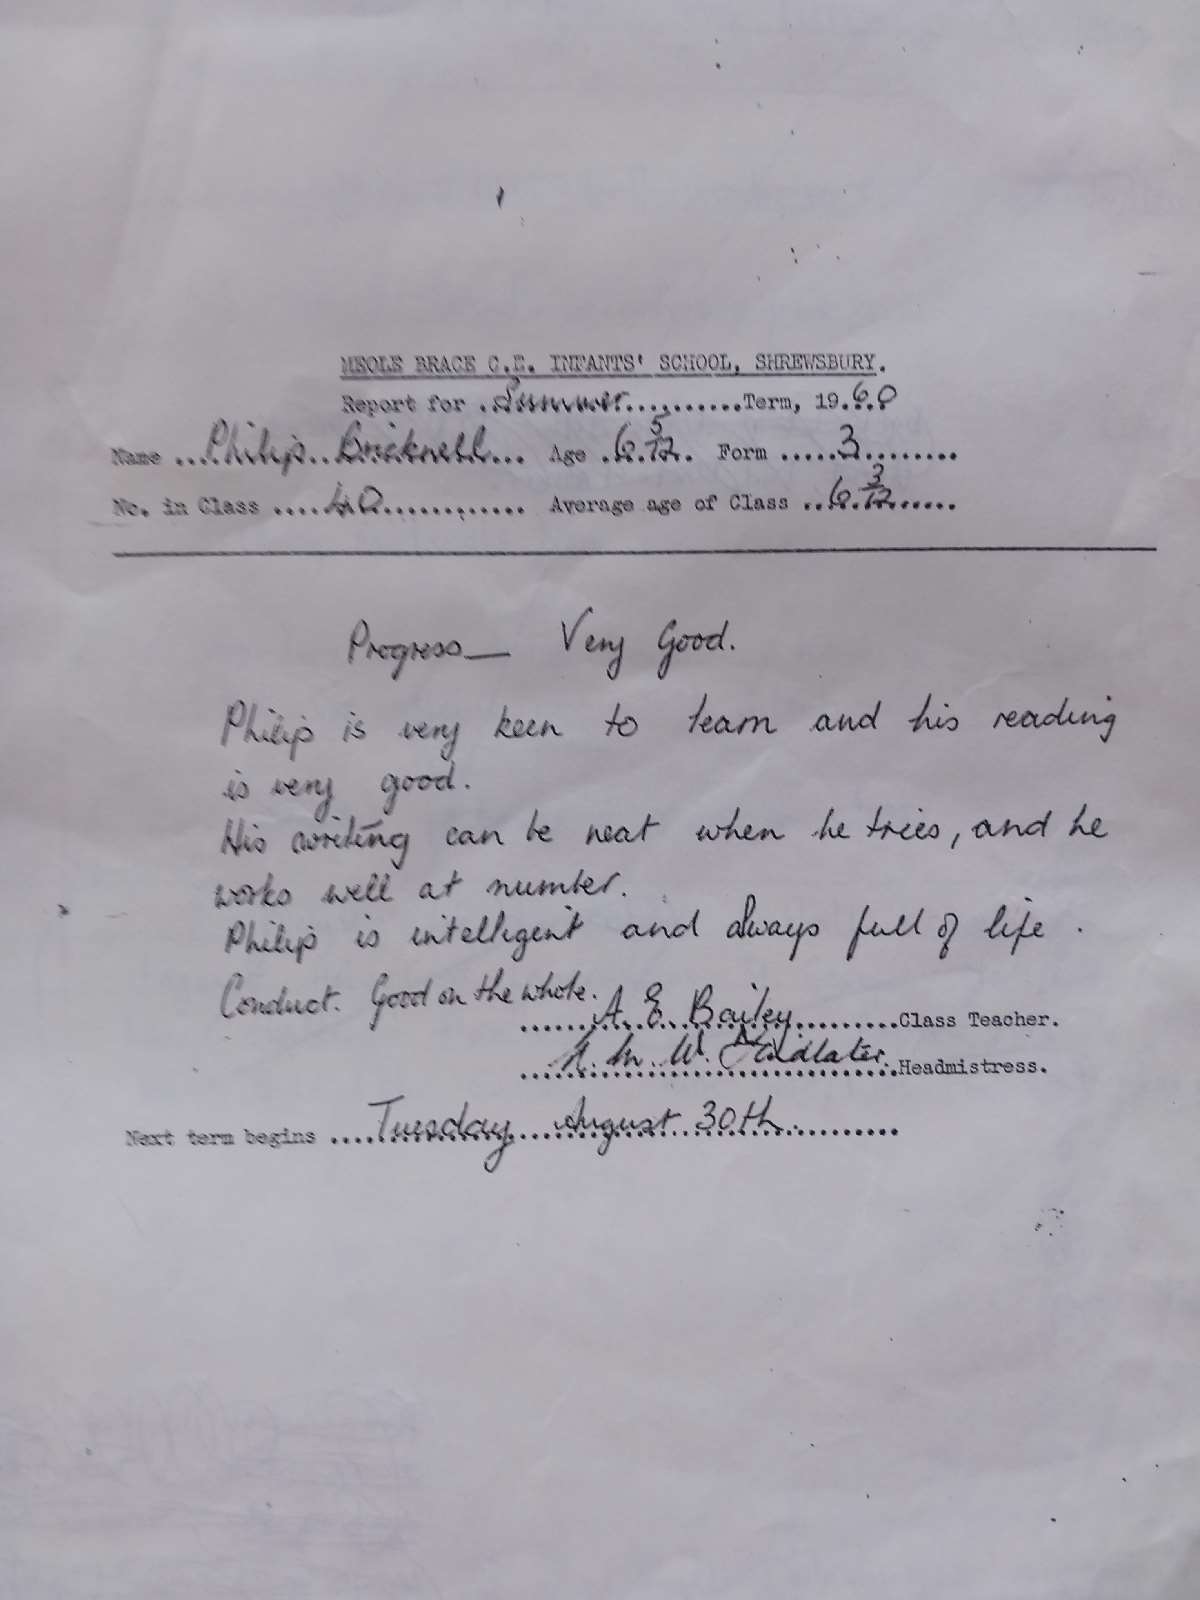 MEOLE BRACE C.E. INFANTS' SCHOOL, SHREWSBURY.
Report for Summer Term, 1960
Name Philip Bricknell Age 6 5/12 Form 3
No. in Class 40 Average age of Class 6 3/12
Progress — Very Good.
Philip is very keen to learn and his reading
is very good.
His writing can be neat when he tries, and he
works well at number.
Philip is intelligent and always full of life.
Conduct. Good on the whole.
A E Bailey Class Teacher.
M. W. Headmistress.
Next term begins Tuesday August 30th.